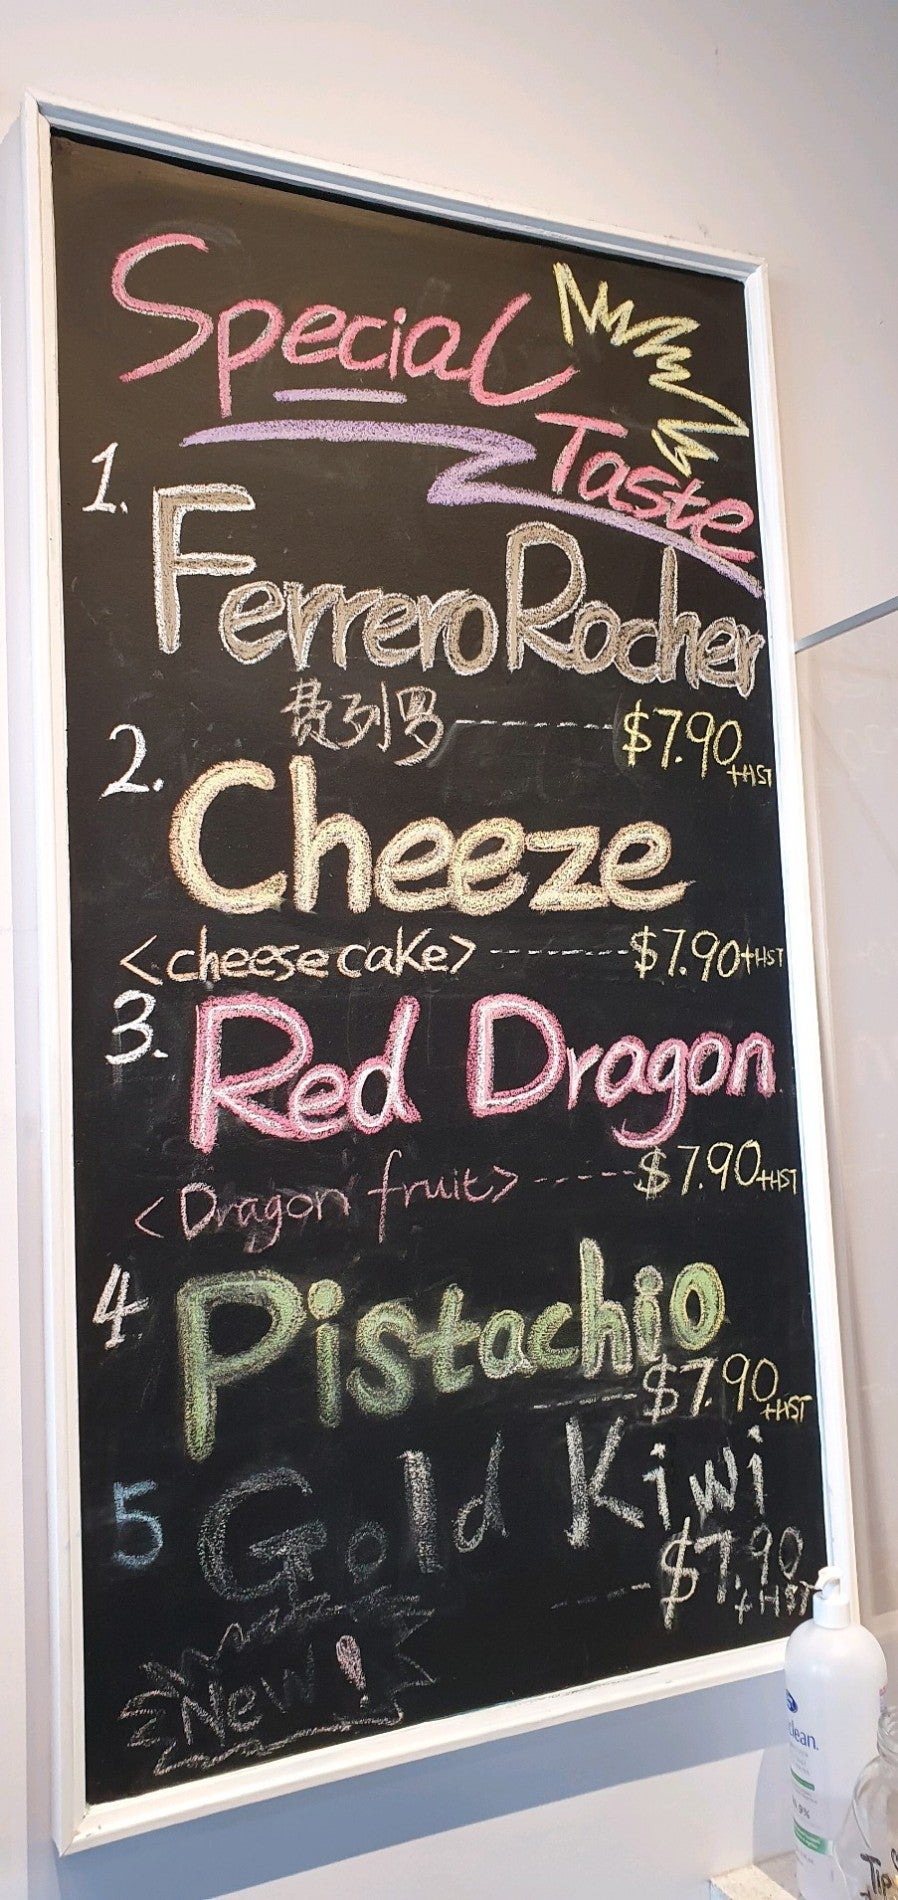 Special
Taste
1. Ferrero Rocher
费列罗 ------ $7.90 +HST
2. Cheeze
<cheese cake> ------ $7.90 +HST
3. Red Dragon
<Dragon fruit> ----- $7.90 +HST
4 Pistachio
---- $7.90 +HST
5 Gold Kiwi
---- $7.90 +HST
New!
clean.
Tip